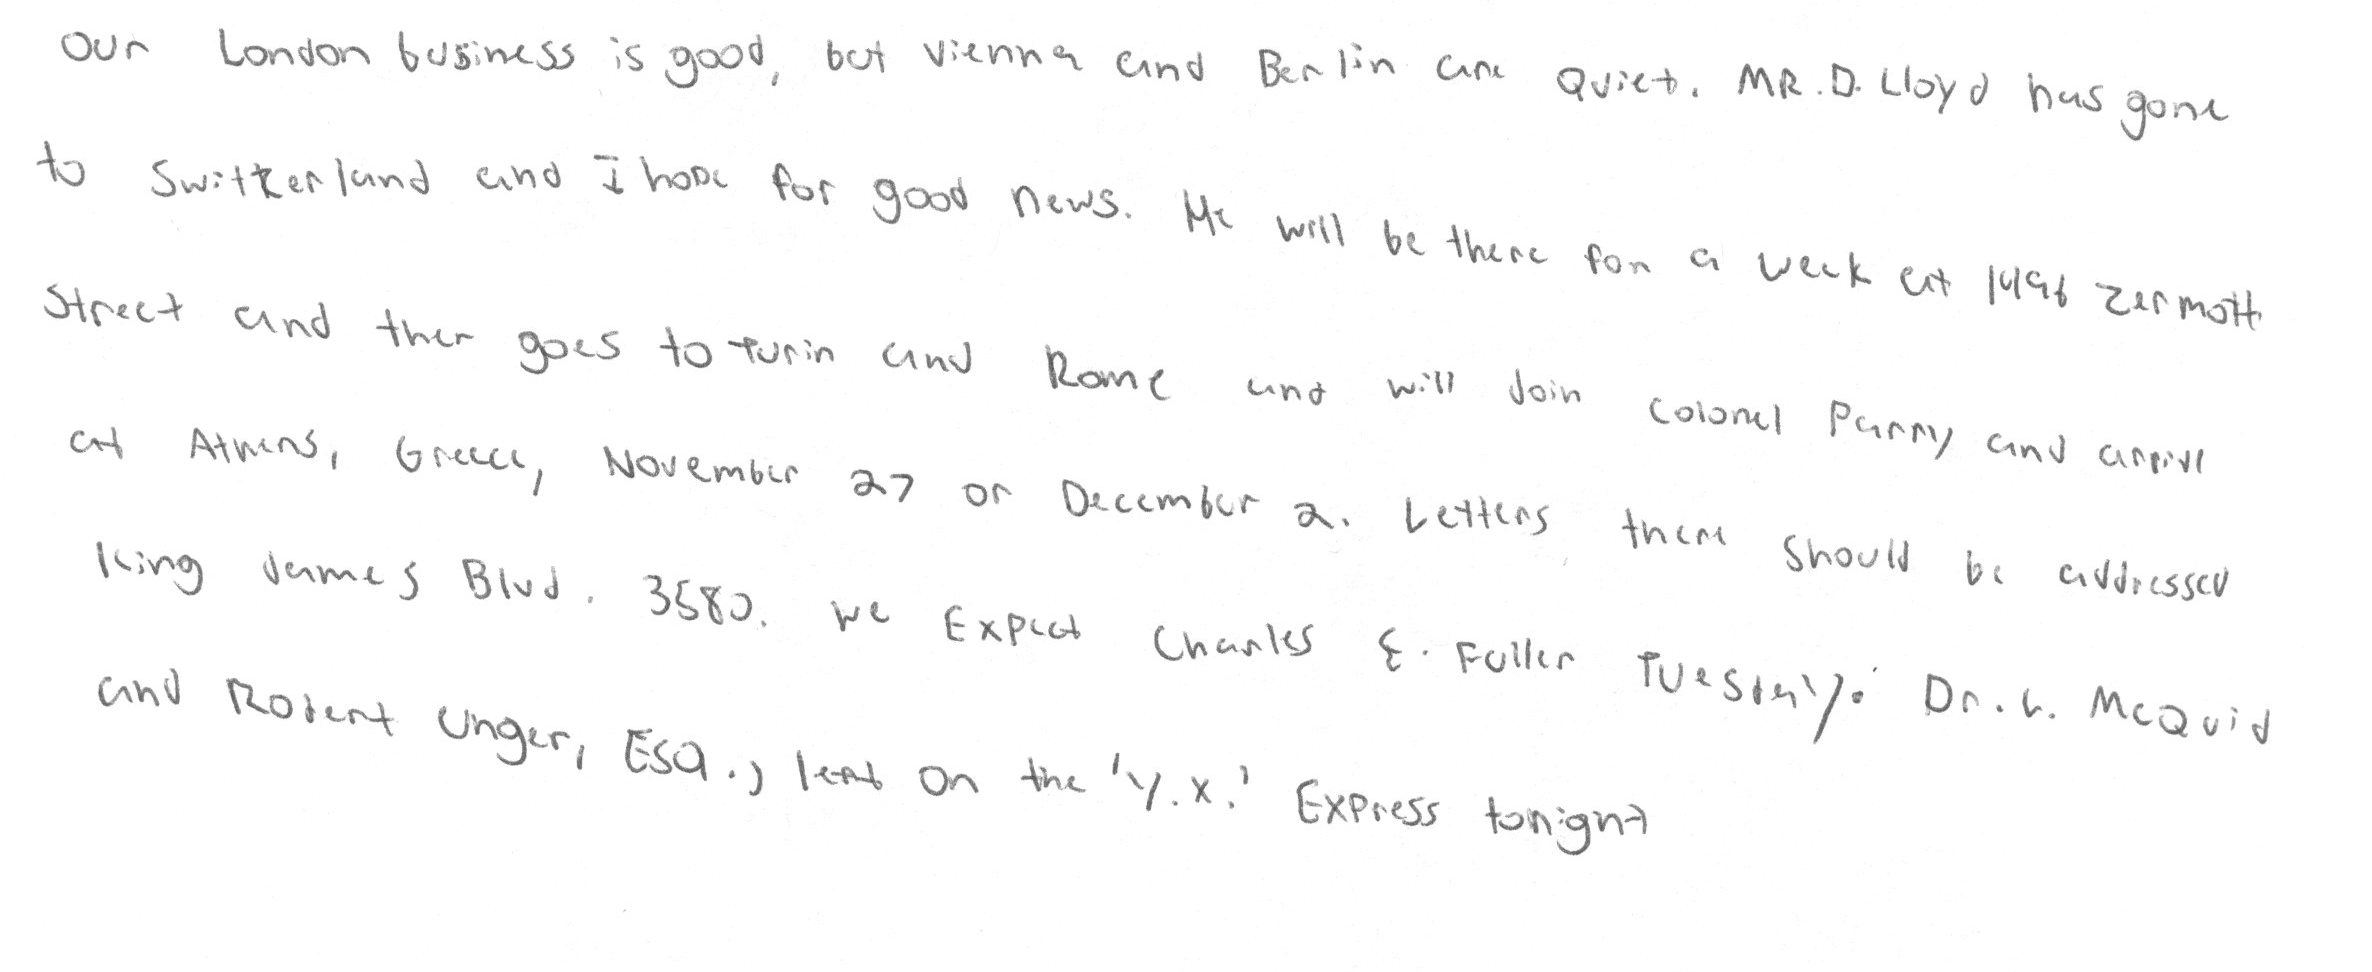 Our London business is good, but Vienna and Berlin are Quiet. MR. D. Lloyd has gone
to Switzerland and I hope for good news. He will be there for a week at 1496 Zermott
Street and then goes to Turin and Rome and will Join Colonel Parry and arrive
at Athens, Greece, November 27 or December 2. Letters there should be addressed
King James Blvd. 3580. We Expect Charles E. Fuller Tuesday. Dr. L. McQuid
and Robert Unger, ESQ., left on the 'Y.X.' Express tonight